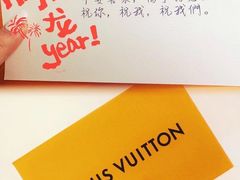 龙
year!
祝你，祝我，祝我們。
UIS VUITTON